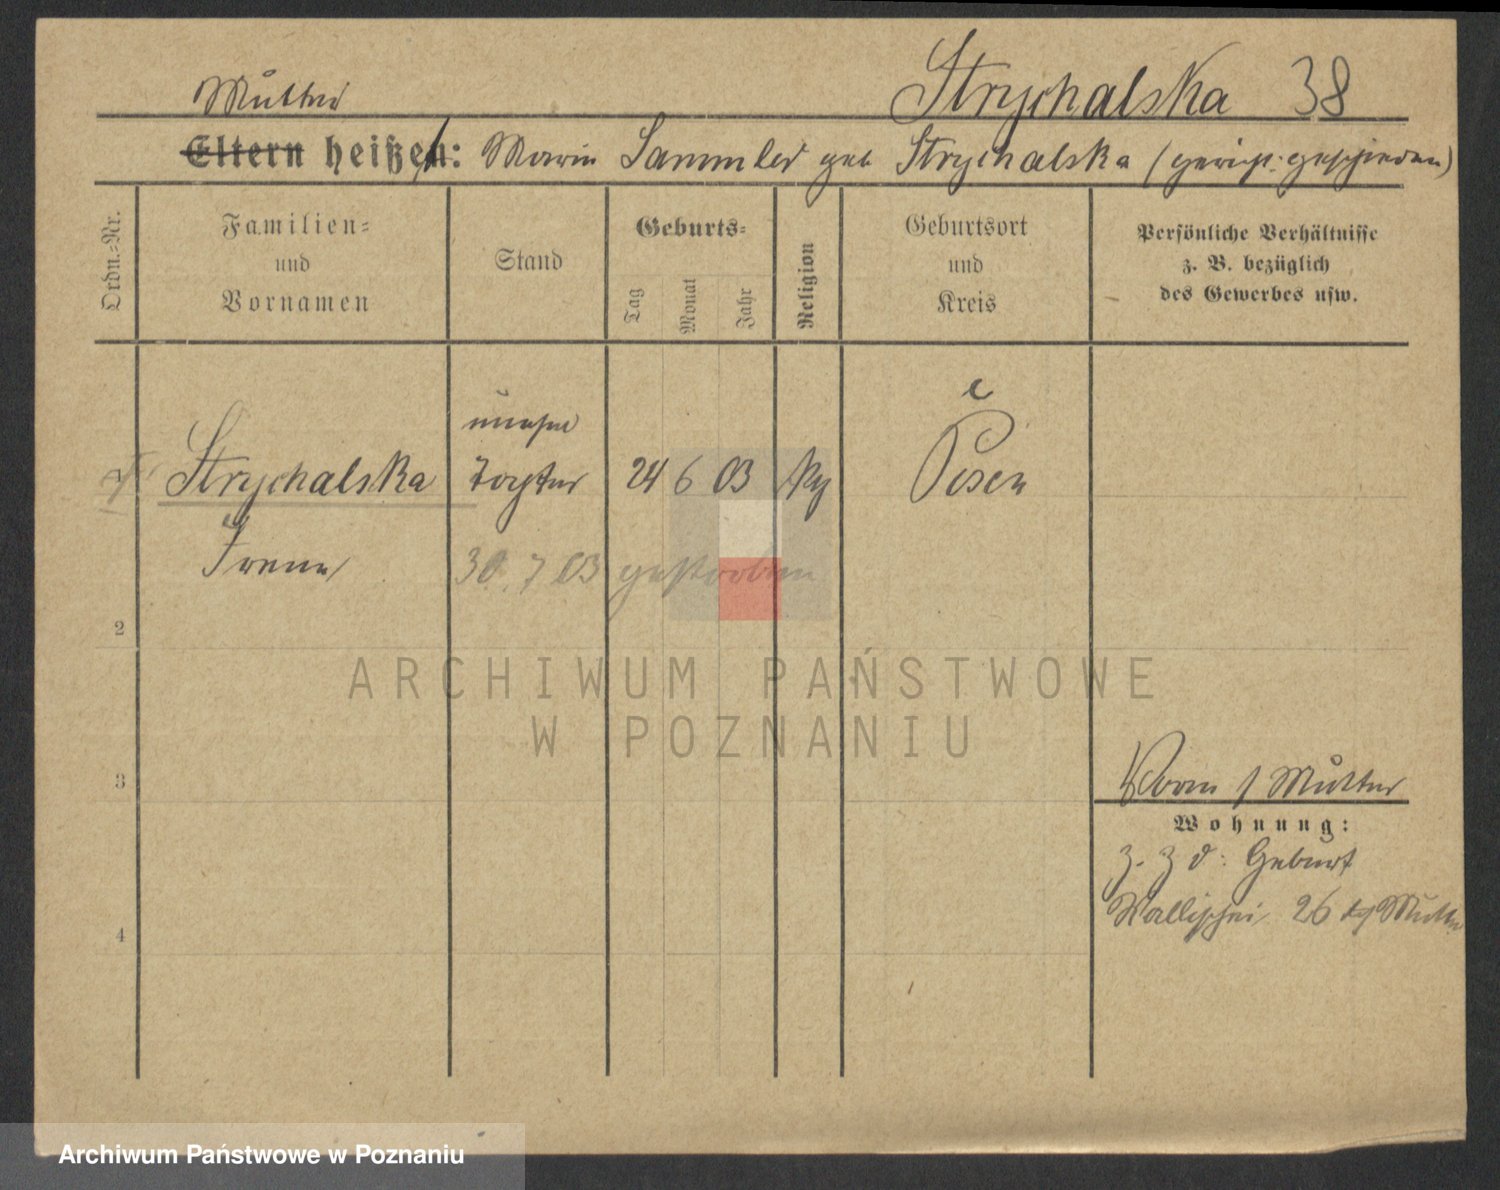 Strychalska 38
Mutter
Eltern heißen: Marie Sammler geb Strychalska (gericht. geschieden)
Ordn.-Nr.
Familien- und Vornamen
Stand
Geburts-
Tag
Monat
Jahr
Religion
Geburtsort und Kreis
Persönliche Verhältnisse z. B. bezüglich des Gewerbes usw.
unehel
Strychalska Tochter 24 6 03 Posen
Irene 30. 7 03 gestorben
2
ARCHIWUM PAŃSTWOWE
W POZNANIU
3
Mutter
Wohnung:
z. Z d: Geburt
4
Wallischei 26 Mutter
Archiwum Państwowe w Poznaniu